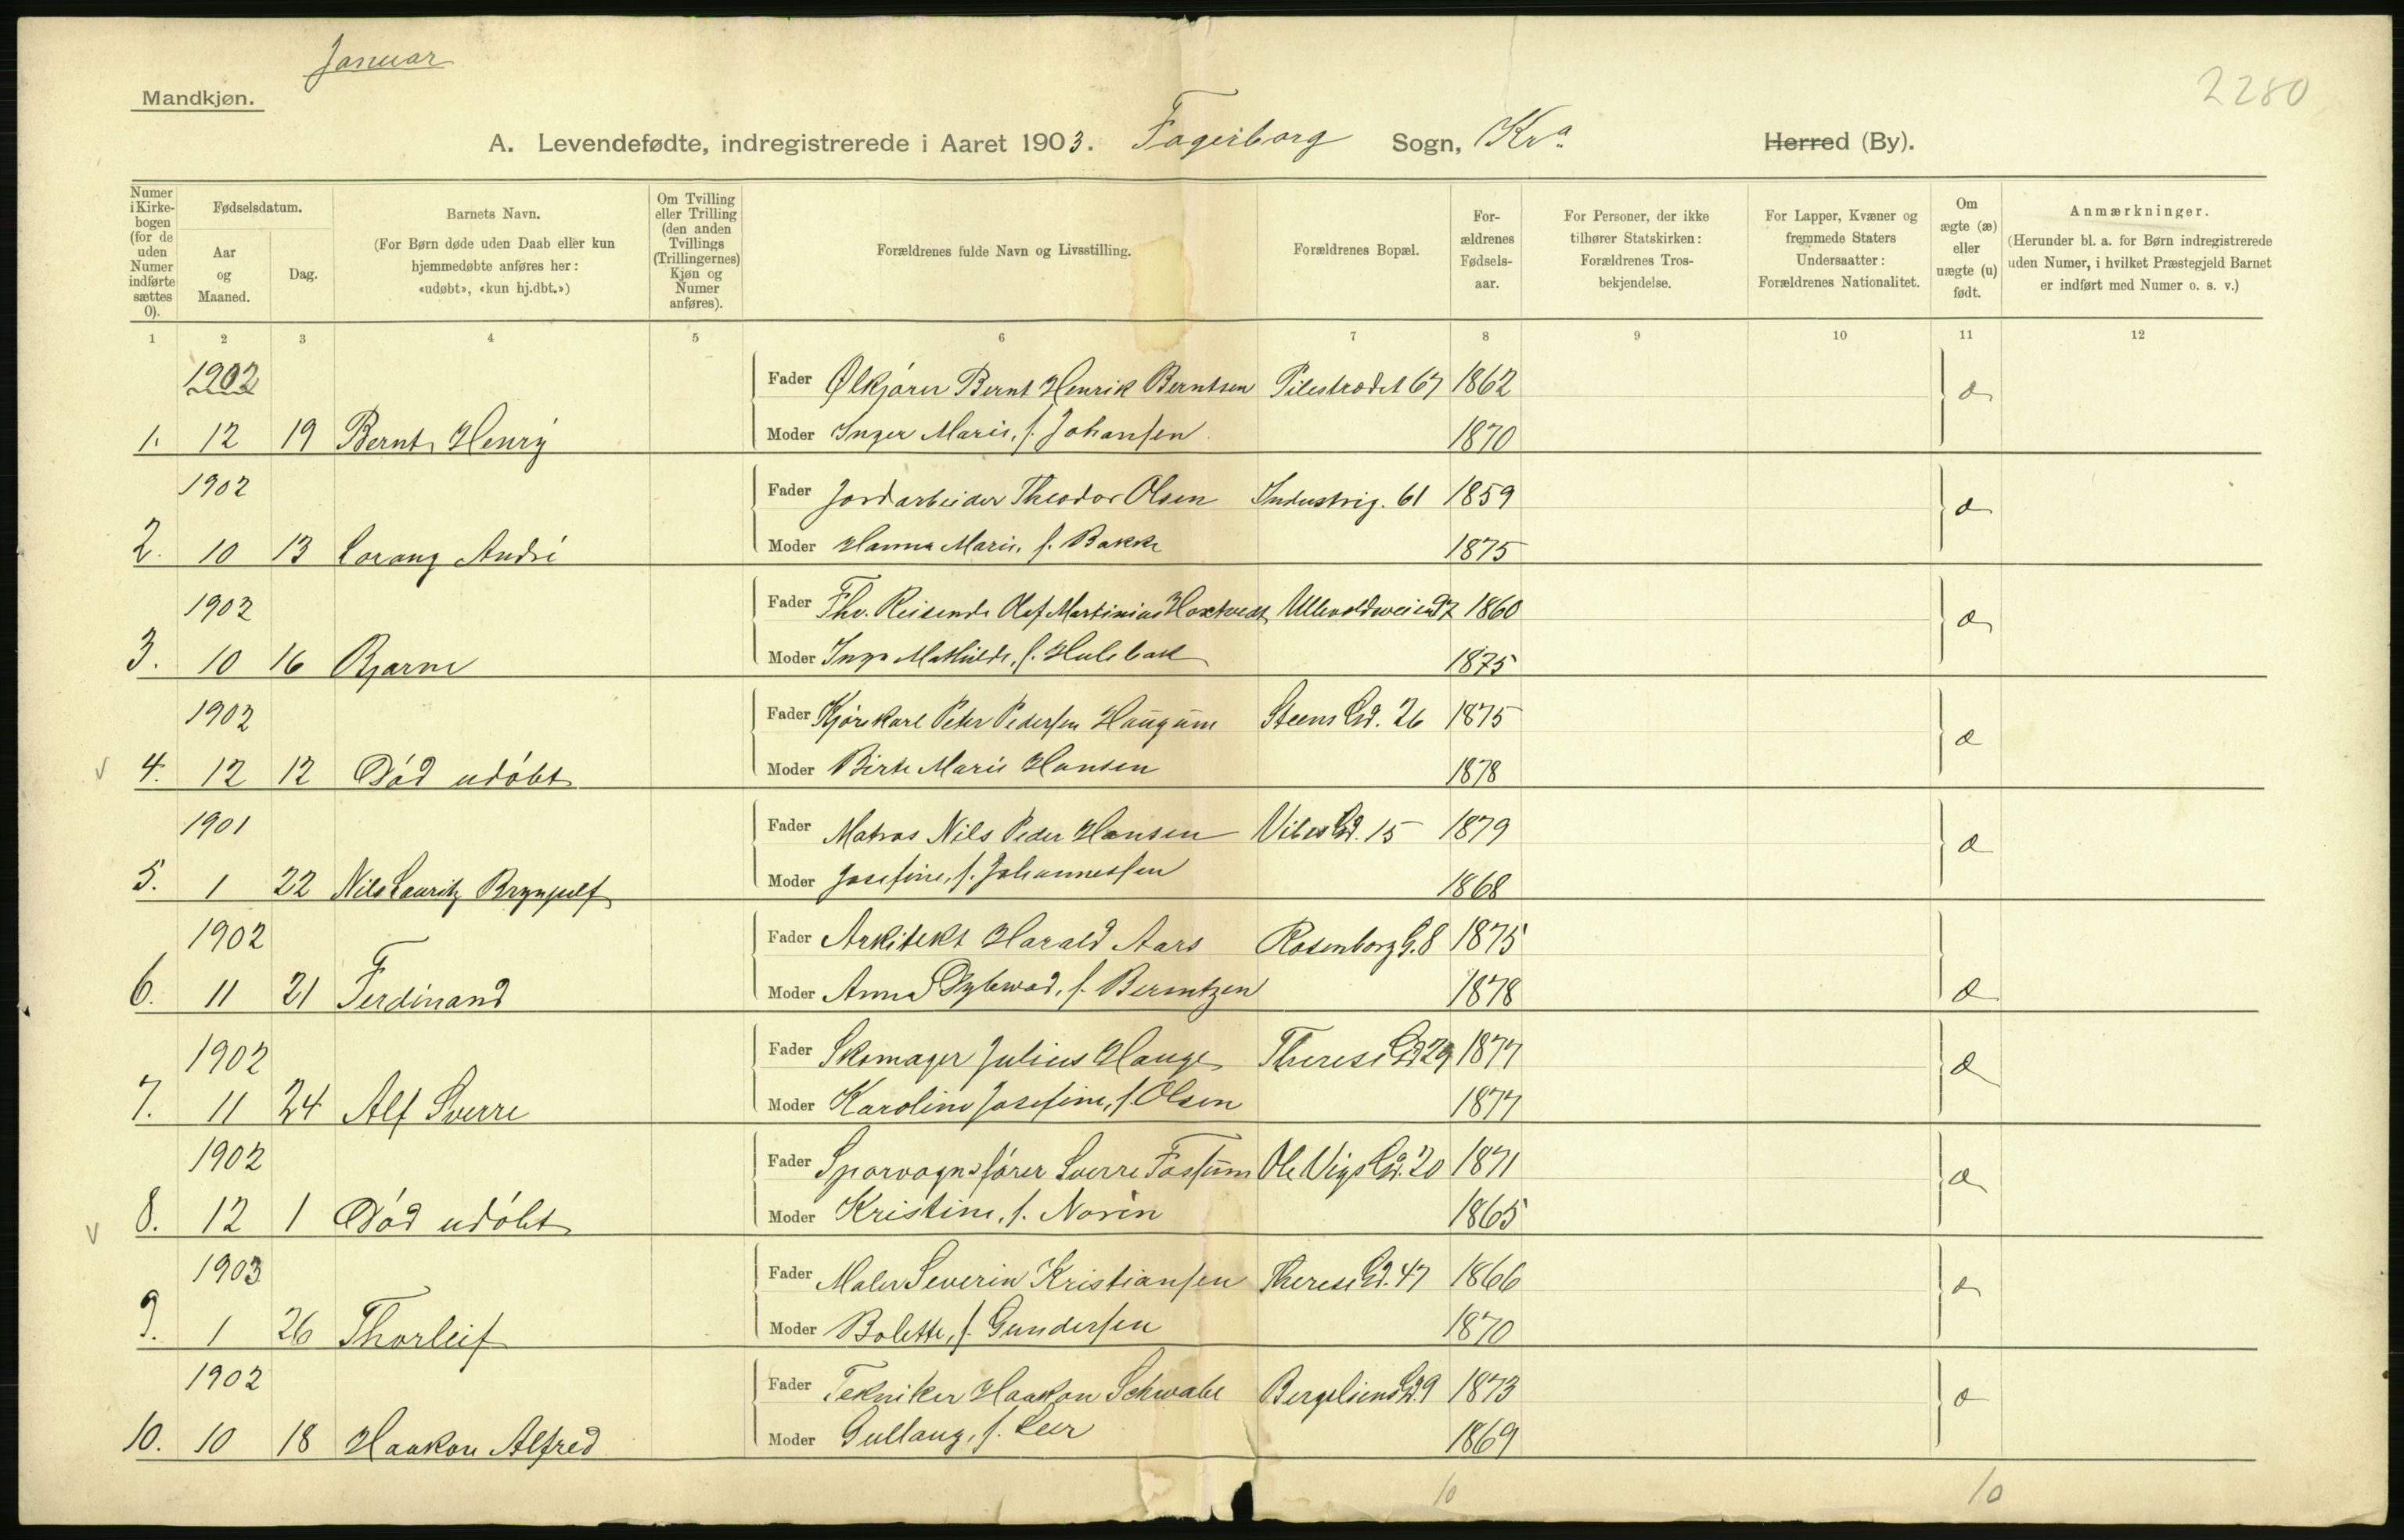 Januar
2280
Mandkjøn.
A. Levendefødte, indregistrerede i Aaret 1903. Fagerborg Sogn, Kra. Herred (By).
Numer i Kirkebogen (for de uden Numer indførte sættes 0).
Fødselsdatum.
Aar og Maaned.
Dag.
Barnets Navn.
(For Børn døde uden Daab eller kun hjemmedøbte anføres her: «udøbt», «kun hj.dbt.»)
Om Tvilling eller Trilling (den anden Tvillings (Trillingernes) Kjøn og Numer anføres).
Forældrenes fulde Navn og Livsstilling.
Forældrenes Bopæl.
Forældrenes Fødselsaar.
For Personer, der ikke tilhører Statskirken: Forældrenes Trosbekjendelse.
For Lapper, Kvæner og fremmede Staters Undersaatter: Forældrenes Nationalitet.
Om ægte (æ) eller uægte (u) født.
Anmærkninger.
(Herunder bl. a. for Børn indregistrerede uden Numer, i hvilket Præstegjeld Barnet er indført med Numer o. s. v.)
1 2 3 4 5 6 7 8 9 10 11 12
1902 Fader Ølkjører Bernt Henrik Berntsen Pilestrædet 67 1862 æ
1. 12 19 Bernt Henry Moder Inger Marie, f. Johansen 1870
1902 Fader Jordarbeider Theodor Olsen Industrig. 61 1859 æ
2. 10 13 Lorang André Moder Hanna Marie, f. Bakke 1875
1902 Fader Fhv. Reisende Olaf Martinius Ullevoldsveien 1860 æ
3. 10 16 Bjarne Moder Inga Mathilde, f. Hulebak 1875
1902 Fader Kjørekarl Peter Pedersen Haugum Steens Gd. 26 1875 æ
v 4. 12 12 Død udøbt Moder Birte Marie Hansen 1878
1901 Fader Matros Nils Peder Hansen Vibes Gd. 15 1879 æ
5. 1 22 Nils Lauritz Brynjulf Moder Josefine, f. Johannessen 1868
1902 Fader Arkitekt Harald Aars Rosenborg G. 8 1875
6. 11 21 Ferdinand Moder Anna Dybwad, f. Berntzen 1878 æ
1902 Fader Skomager Julius Hauge Therese Gd 29 1877 æ
7. 11 24 Alf Sverre Moder Karoline Josefine, f. Olsen 1877
1902 Fader Sporvognsfører Sverre Fossum Ole Vigs Gd. 20 1871 æ
v 8. 12 1 Død udøbt Moder Kristine, f. Norén 1865
1903 Fader Maler Severin Kristiansen Therese Gd. 47 1866 æ
9. 1 26 Thorleif Moder Bolette, f. Gundersen 1870
1902 Fader Tekniker Haakon Schwabe Bergslien Gd. 9 1873 æ
10. 10 18 Haakon Alfred Moder Gullaug, f. Leer 1869
10 10